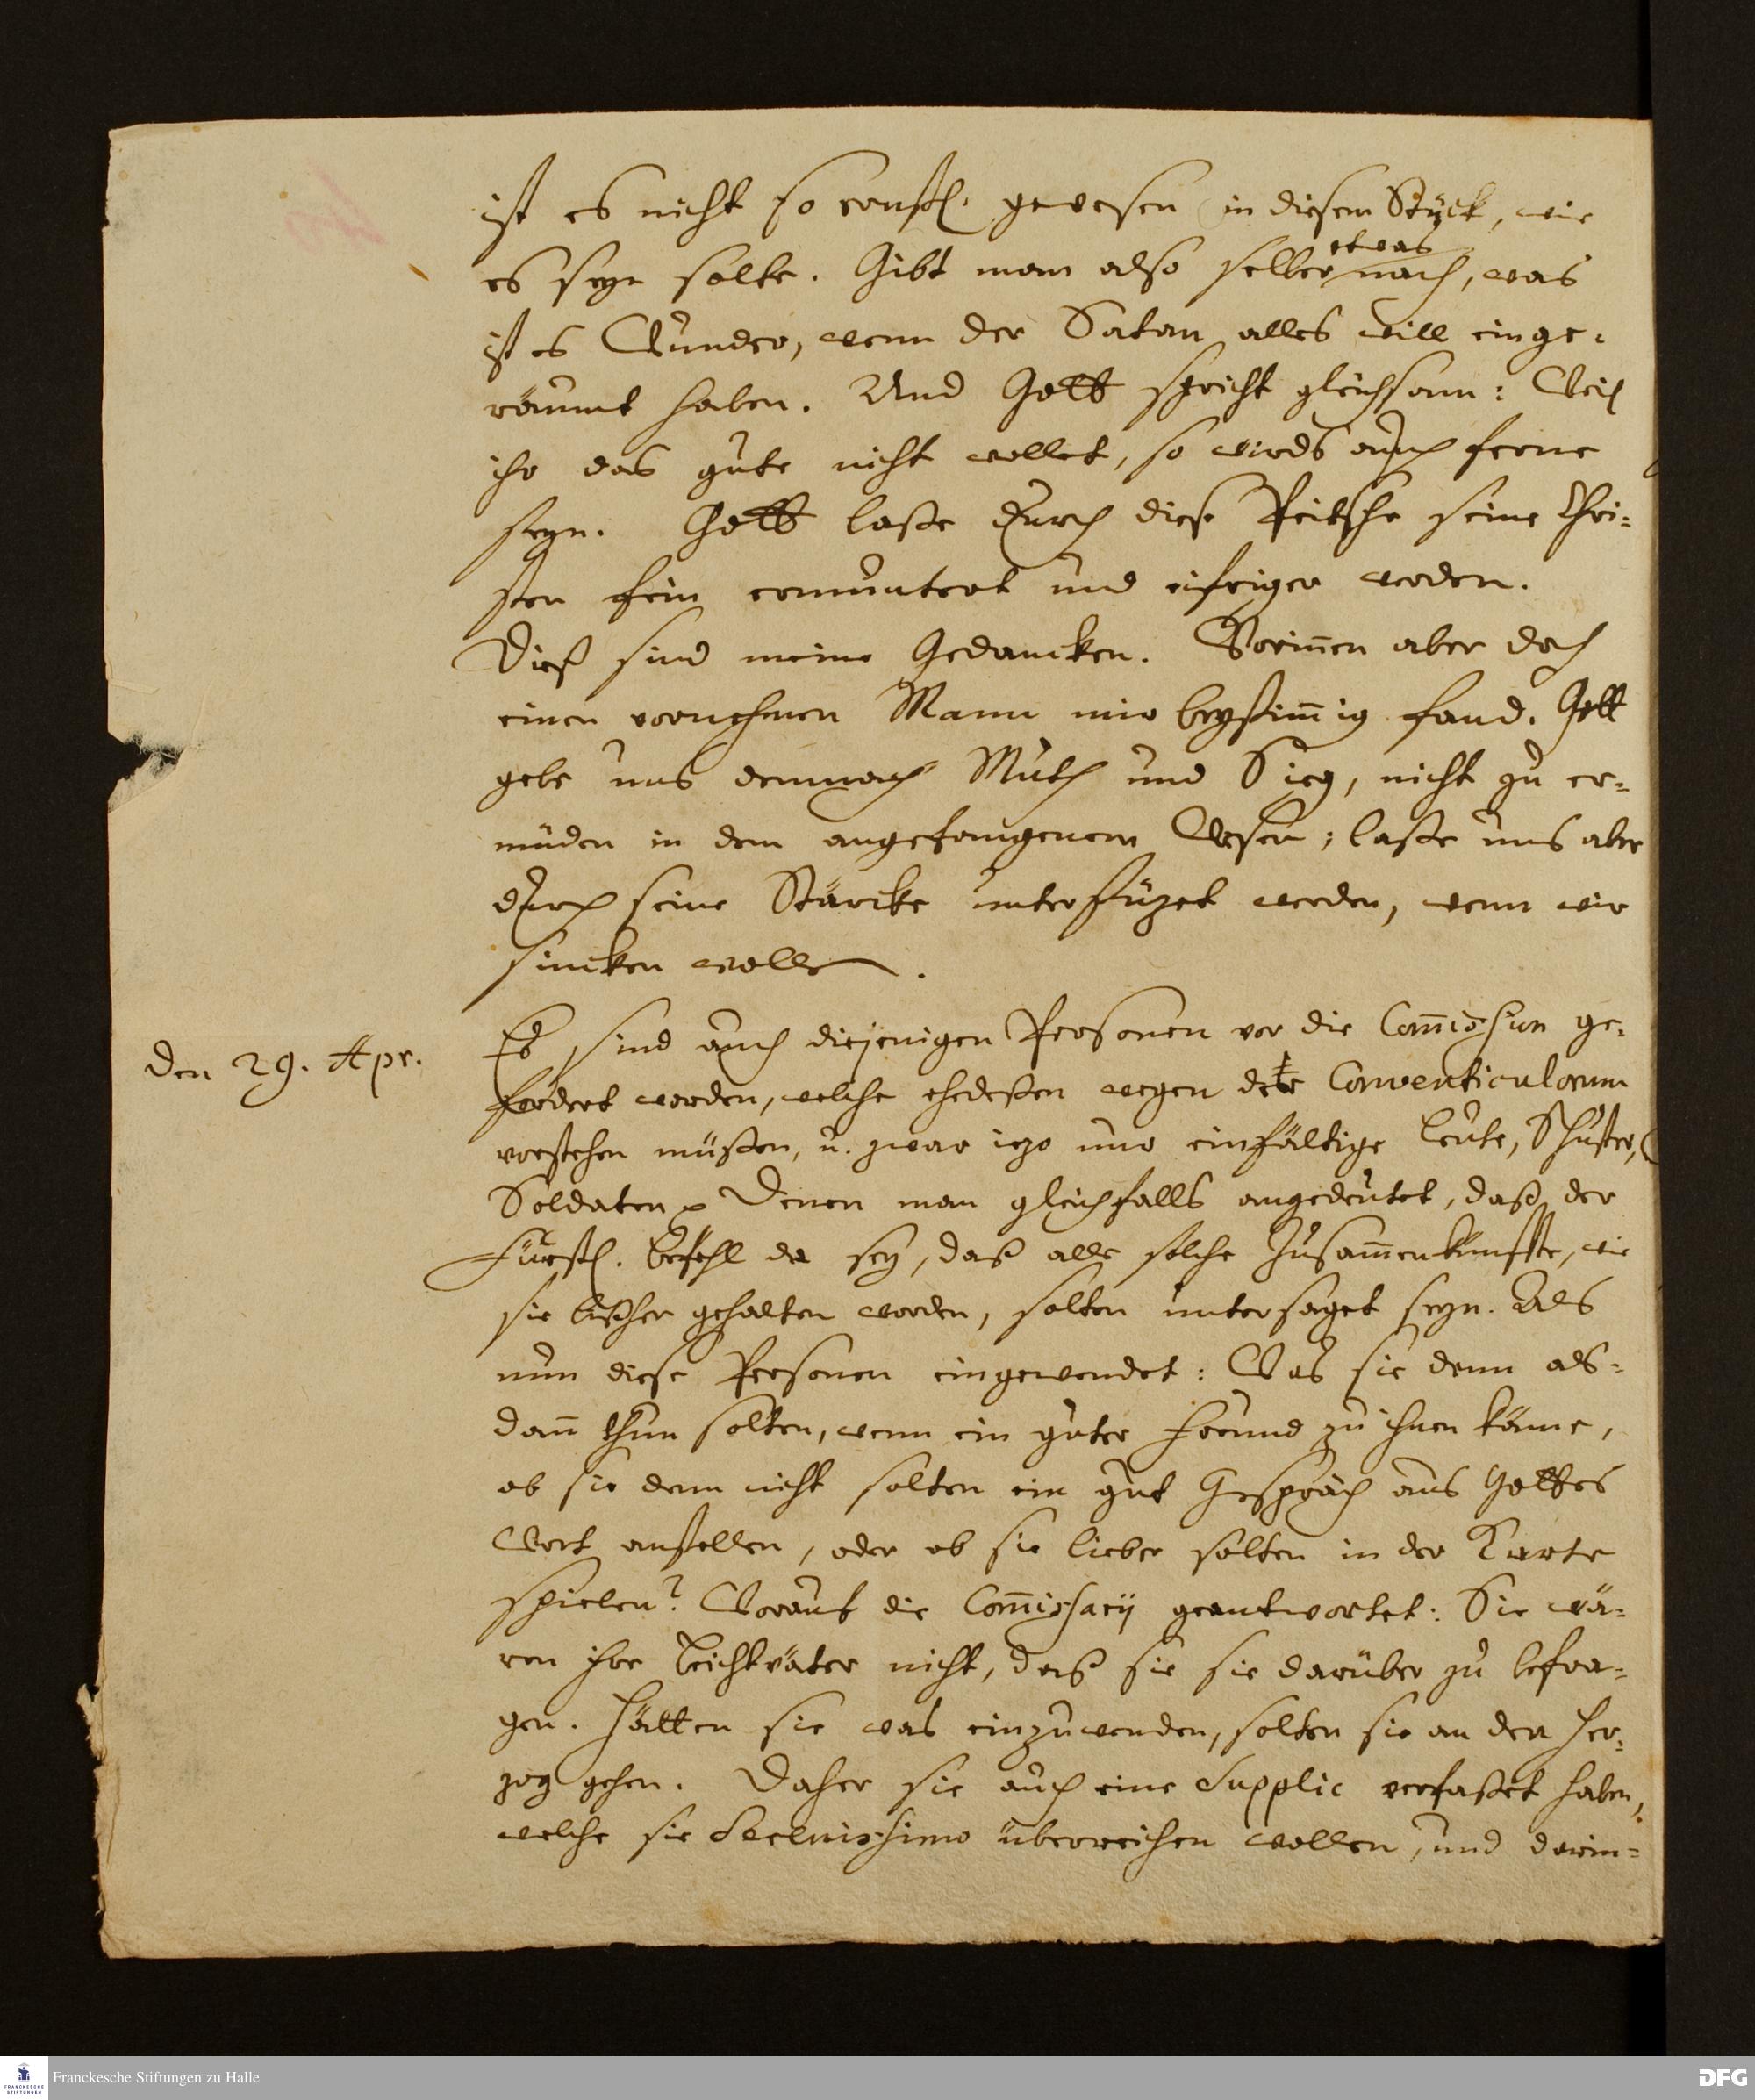 ist es nicht so ernstl. gewesen in diesem Stück, wie
etwas
es seyn solte. Gibt man also selber nach, was
ist es Wunder, wenn der Satan alles will einge-
räumt haben. Und Gott spricht gleichsam: Weil
ihr das gute nicht wollet, so wirds auch ferne
seyn. Gott laße durch diese Peitsche seine Chri-
sten fein ermuntert und eifriger werden.
Dieß sind meine Gedancken. Worin̄en aber doch
einen vornehmen Mann mir beystim̄ig fand. Gott
gebe uns demnach Muth und Sieg, nicht zu er-
müden in dem angefangenem Wesen; laße uns aber
durch seine Stärcke unterstüzet werden, wenn wir
sincken wollen.
den 29. Apr.
Es sind auch diejenigen Personen vor die Com̄ission ge-
fordert worden, welche ehedeßen wegen der Conventiculorum
vorstehen müßen, u. zwar izo nur einfältige Leute, Schuster,
Soldaten Denen man gleichfalls angedeutet, daß der
Fürstl. Befehl da sey, daß alle solche Zusam̄enkünffte, wie
sie bißher gehalten worden, solten untersaget seyn. Als
nun diese Personen eingewendet: Was sie denn als-
dan̄ thun solten, wenn ein guter Freund zu ihnen käme,
ob sie denn nicht solten ein gut Gespräch aus Gottes
Wort anstellen, oder ob sie lieber solten in der Karte
spielen? Worauf die Com̄issarij geantwortet: Sie wä-
ren ihre Beichtväter nicht, daß sie sie darüber zu befra-
gen. Hätten sie was einzuwenden, solten sie an den Her-
zog gehen. Daher sie auch eine Supplic verfaßet haben,
welche sie Serenissimo überreichen wollen, und darin-
Franckesche Stiftungen zu Halle
DFG